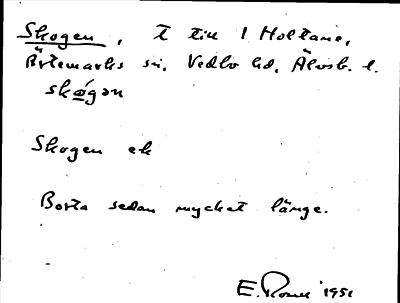 Skogen, t till 1 Holtane,
Ärtemarks sn, Vedbo hd, Älvsb. l.
skógən
Skogen ek
Borta sedan mycket länge.
E. 1951